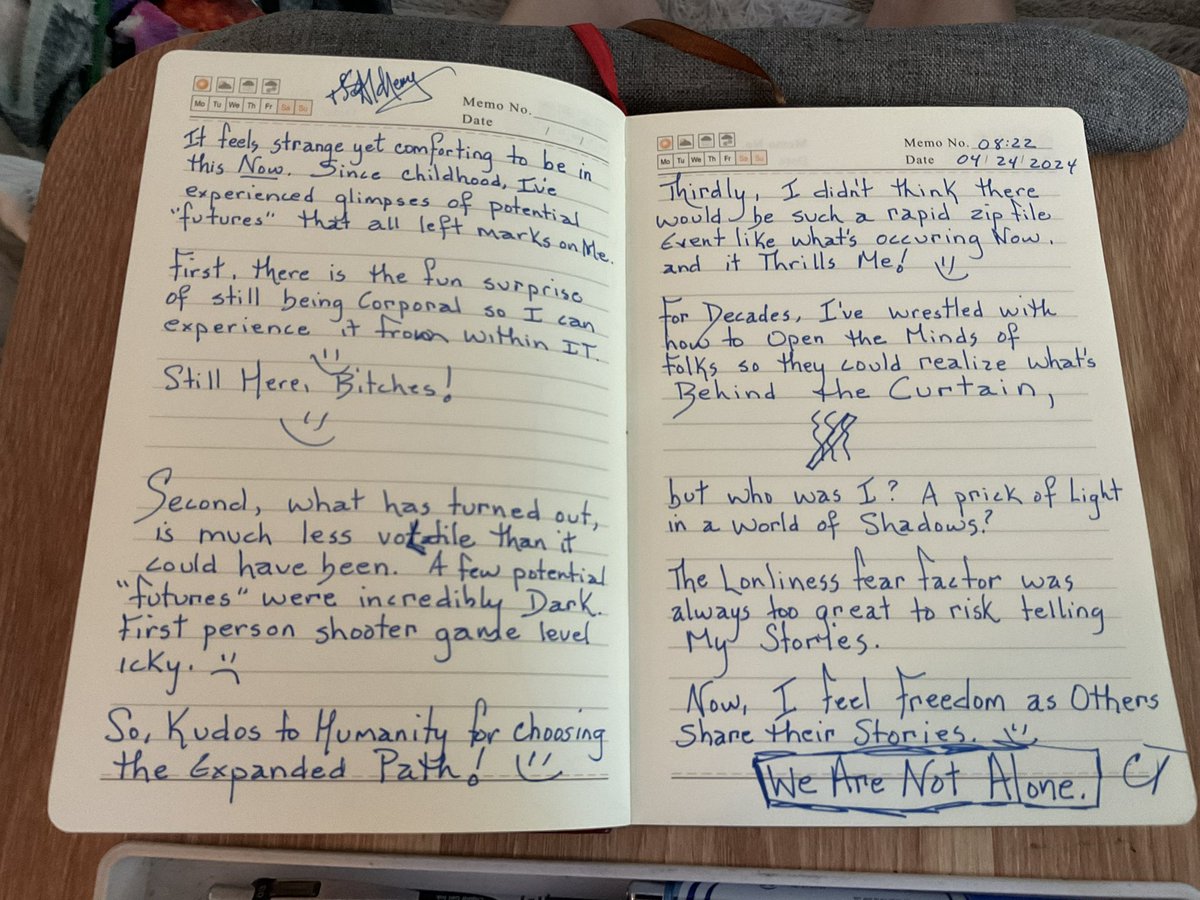 Mo Tu We Th Fr Sa Su
Memo No.
Date / /
It feels strange yet comforting to be in
this Now. Since childhood, I've
experienced glimpses of potential
"futures" that all left marks on Me.
First, there is the fun surprise
of still being Corporal so I can
experience it from within IT.
Still Here, Bitches!
Second, what has turned out,
is much less volatile than it
could have been. A few potential
"futures" were incredibly Dark.
First person shooter game level
icky.
So, Kudos to Humanity for choosing
the Expanded Path!
Mo Tu We Th Fr Sa Su
Memo No. 08:22
Date 04/24/2024
Thirdly, I didn't think there
would be such a rapid zip file
Event like what's occuring Now,
and it Thrills Me!
For Decades, I've wrestled with
how to Open the Minds of
folks so they could realize what's
Behind the Curtain,
but who was I? A prick of Light
in a World of Shadows?
The Lonliness fear factor was
always too great to risk telling
My Stories.
Now, I feel Freedom as Others
Share their Stories.
We Are Not Alone.